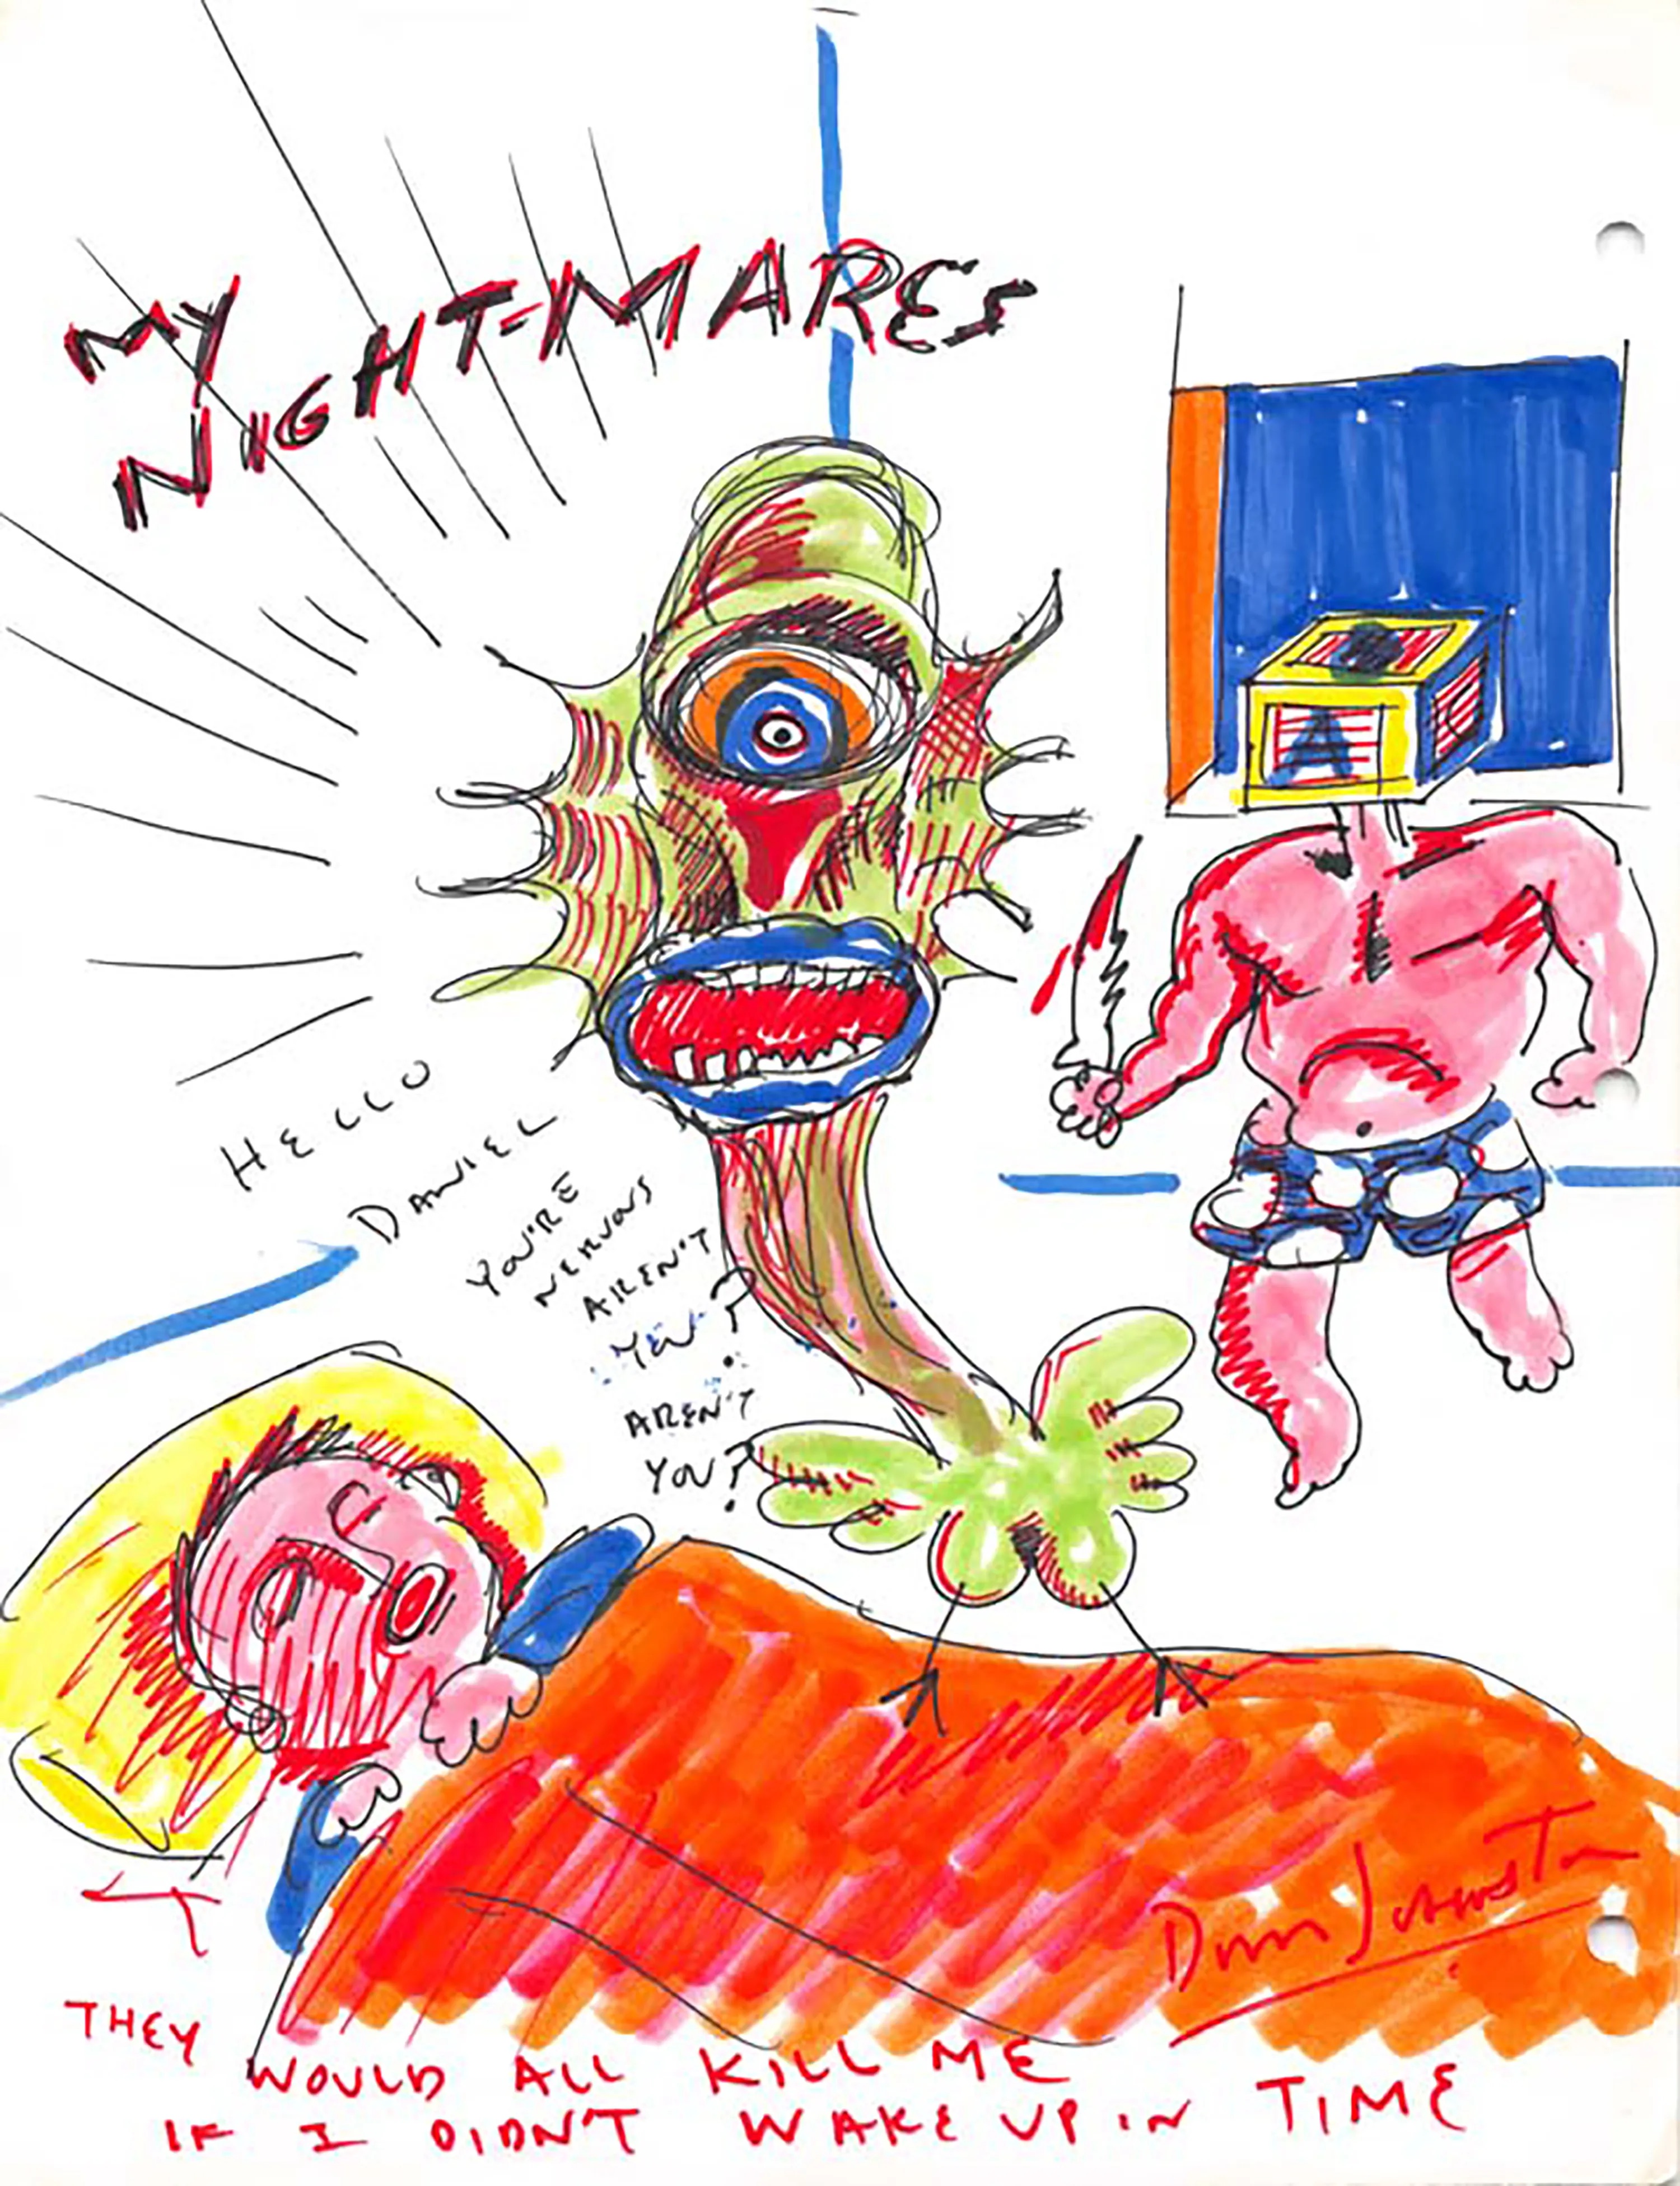 MY
NIGHT-MARES
HELLO
DANIEL
YOU'RE
NERVOUS
AREN'T
YOU?
AREN'T
YOU?
A
THEY
WOULD ALL KILL ME
IF I DIDN'T WAKE UP IN TIME